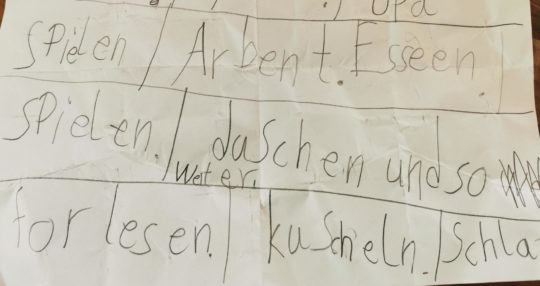 Opa
spielen / Arbent. Esseen.
spielen. / daschen und so
weiter.
for lesen. / kuscheln. / Schla